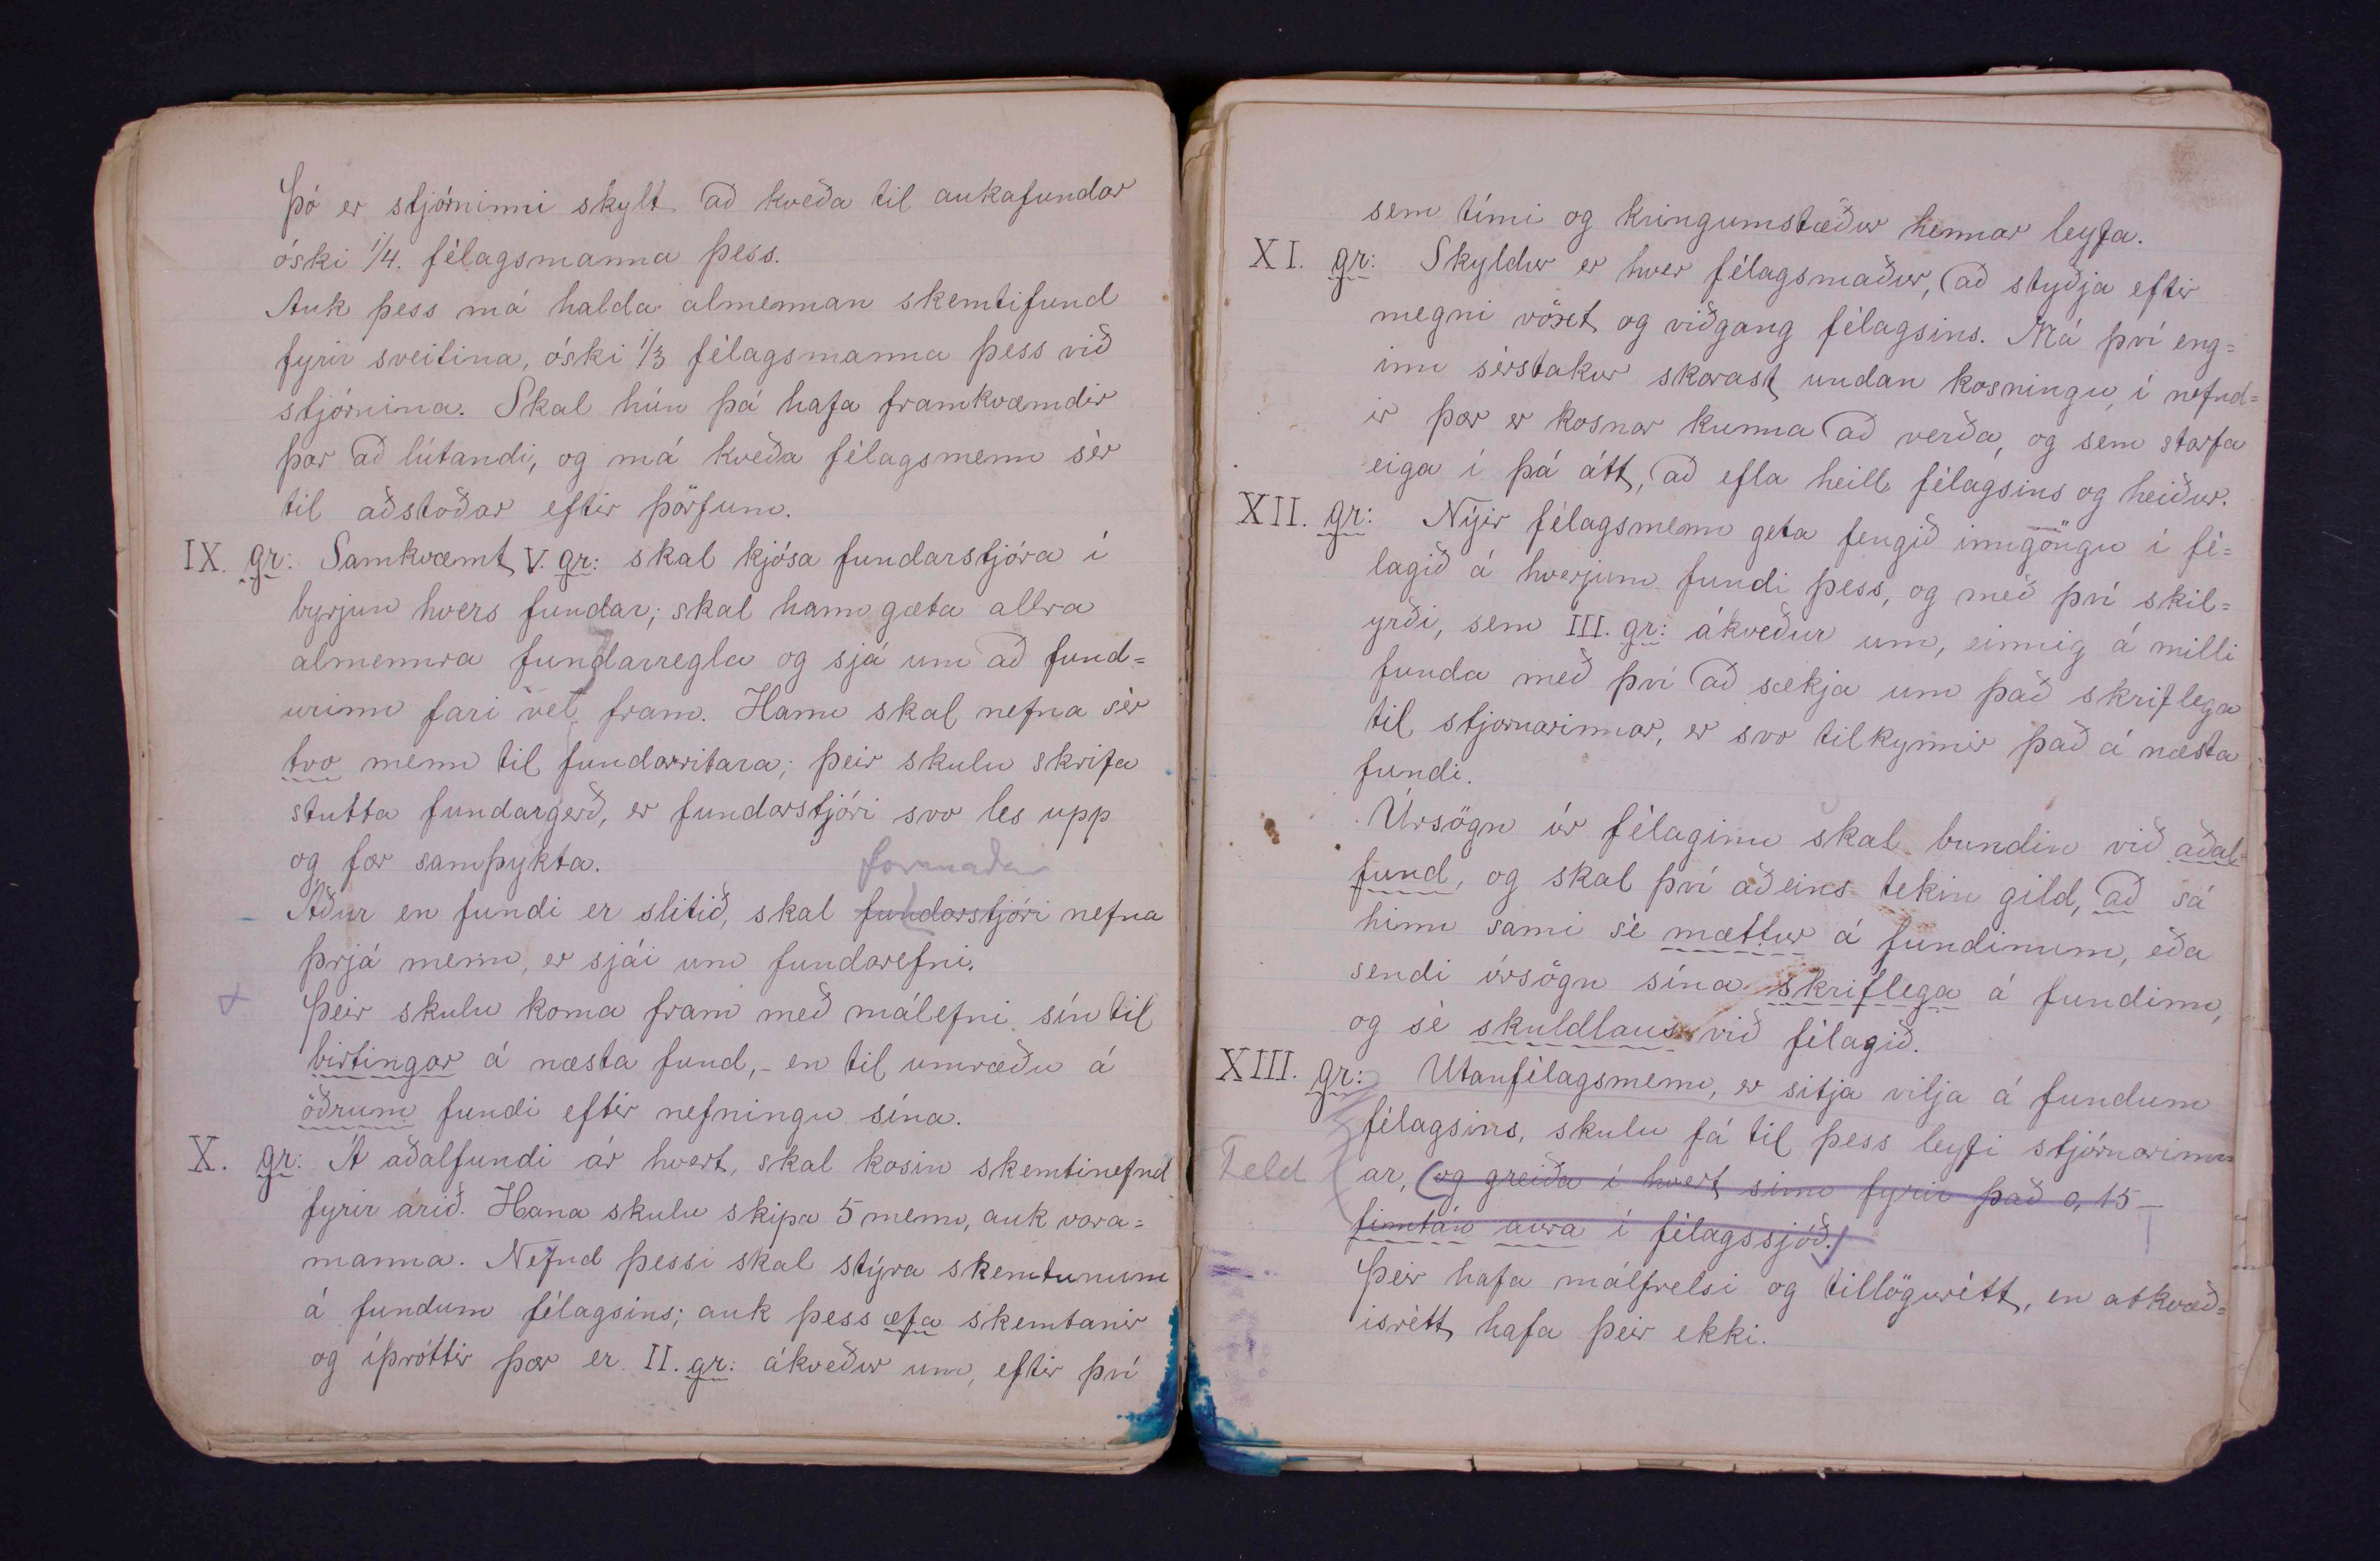 Þó er stjórninni skylt að kveða til aukafundar
óski 1/4. félagsmanna þess.
Auk þess má halda almennan skemtifund
fyrir sveitina, óski 1/3 félagsmanna þess við
stjórnina. Skal hún þá hafa framkvæmdir
þar að lútandi, og má kveða félagsmenn sér
til aðstoðar eftir þörfum.
IX. gr: Samkvæmt V. gr: skal kjósa fundarstjóra í
byrjun hvers fundar; skal hann gæta allra
almennra fundarregla og sjá um að fund=
urinn fari vel fram. Hann skal nefna sér
tvo menn til fundarritara; þeir skulu skrifa
stutta fundargerð, er fundarstjóri svo les upp
og fær samþykta.
formaður
Áður en fundi er slitið, skal fundarstjóri nefna
þrjá menn, er sjái um fundarefni.
Þeir skulu koma fram með málefni sín til
birtingar á næsta fund, - en til umræðu á
öðrum fundi eftir nefningu sína.
X. gr: Á aðalfundi ár hvert, skal kosin skemtinefnd
fyrir árið. Hana skulu skipa 5 menn, auk vara=
manna. Nefnd þessi skal stýra skemtunum
á fundum félagsins; auk þess æfa skemtanir
og íþróttir þær er II. gr: ákveður um, eftir því
sem tími og kringumstæður hennar leyfa.
XI. gr: Skyldur er hver félagsmaður, að styðja eftir
megni vöxt og viðgang félagsins. Má því eng=
inn sérstakur skorast undan kosningu, í nefnd=
ir þær er kosnar kunna að verða, og sem starfa
eiga í þá átt, að efla heill félagsins og heiður.
XII. gr: Nýir félagsmenn geta fengið inngöngu í fé=
lagið á hverjum fundi þess, og með því skil=
yrði, sem III. gr: ákveður um, einnig á milli
funda með því að sækja um það skriflega
til stjornarinnar, er svo tilkynnir það á næsta
fundi.
Úrsögn úr félaginu skal bundin við aðal=
fund, og skal því aðeins tekin gild, að sá
hinn sami sé mættur á fundinum, eða
sendi úrsögn sína skriflega á fundinn,
og sé skuldlaus við félagið.
XIII. gr: Utanfélagsmenn, er sitja vilja á fundum
félagsins, skulu fá til þess leyfi stjórnarinn=
Feld ar, (og greiða í hvert sinn fyrir það 0,15 –
fimtán aura í félagssjóð.)
Þeir hafa málfrelsi og tillögurétt, en atkvæð=
isrétt hafa þeir ekki.